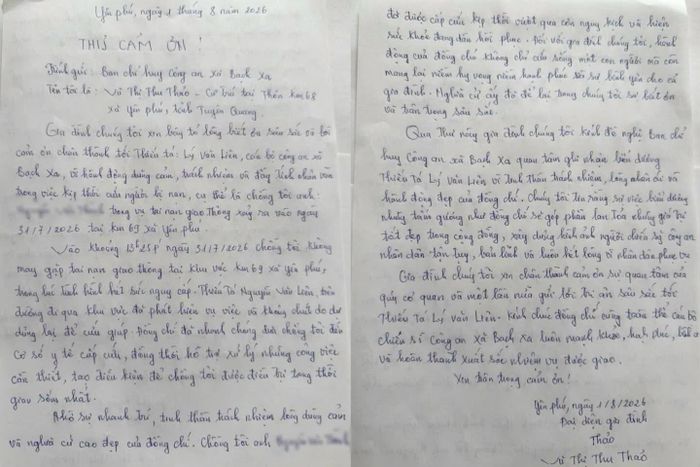 Yên phú, ngày 1 tháng 8 năm 2026
THƯ CẢM ƠN!
Kính gửi: Ban chỉ huy Công an xã Bạch Xa
Tên tôi là: Vũ Thị Thu Thảo - Cư trú tại Thôn Km 68
xã yên phú, tỉnh Tuyên Quang.
Gia đình chúng tôi xin bày tỏ lòng biết ơn sâu sắc và lời
cảm ơn chân thành tới Thiếu tá: Lý Văn Liên, cán bộ công an xã
Bạch Xa, vì hành động dũng cảm, trách nhiệm và đầy tính nhân văn
trong việc kịp thời cứu người bị nạn, cụ thể là chồng tôi anh:
trong vụ tai nạn giao thông xảy ra vào ngày
31/7/2026 tại km 69 xã yên phú.
Vào khoảng 13h25P ngày 31/7/2026 chồng tôi không
may gặp tai nạn giao thông tại khu vực km 69 xã yên phú,
trong lúc tình hình hết sức nguy cấp. Thiếu Tá Nguyễn Văn Liên, trên
đường đi qua khu vực đã phát hiện vụ việc và không chút do dự
dừng lại để cứu giúp. Đồng chí đã nhanh chóng đưa chồng tôi đến
cơ sở y tế cấp cứu, đồng thời hỗ trợ xử lý những công việc
cần thiết, tạo điều kiện để chồng tôi được điều trị trong thời
gian sớm nhất.
Nhờ sự nhanh trí, tinh thần trách nhiệm lòng dũng cảm
và nghĩa cử cao đẹp của đồng chí. Chồng tôi anh
đã được cấp cứu kịp thời vượt qua cơn nguy kịch và hiện
sức khoẻ đang dần hồi phục. Đối với gia đình chúng tôi, hành
động của đồng chí không chỉ cứu sống một con người mà còn
mang lại niềm hy vọng niềm hạnh phúc và sự bình yên cho cả
gia đình. Nghĩa cử ấy đã để lại trong chúng tôi sự biết ơn
và trân trọng sâu sắc.
Qua Thư này gia đình chúng tôi kính đề nghị Ban chỉ
huy Công an xã Bạch Xa quan tâm ghi nhận biểu dương
Thiếu Tá Lý Văn Liên vì tinh thần trách nhiệm, lòng nhân ái và
hành động đẹp của đồng chí. Chúng tôi tin rằng sự việc biểu dương
những tấm gương như đồng chí sẽ góp phần lan toả những giá trị
tốt đẹp trong cộng đồng, xây dựng hình ảnh người chiến sỹ công an
nhân dân tận tuỵ, bản lĩnh và luôn hết lòng vì nhân dân phục vụ
Gia đình chúng tôi xin chân thành cảm ơn sự quan tâm của
quý cơ quan và một lần nữa gửi lời tri ân sâu sắc tới
Thiếu Tá Lý Văn Liên. Kính chúc đồng chí cùng toàn thể cán bộ
chiến sĩ Công an xã Bạch Xa luôn mạnh khoẻ, hạnh phúc,
và hoàn thành xuất sắc nhiệm vụ được giao.
Xin trân trọng cảm ơn!
Yên phú, ngày 1/8/2026
Đại diện gia đình
Thảo
Vũ Thị Thu Thảo